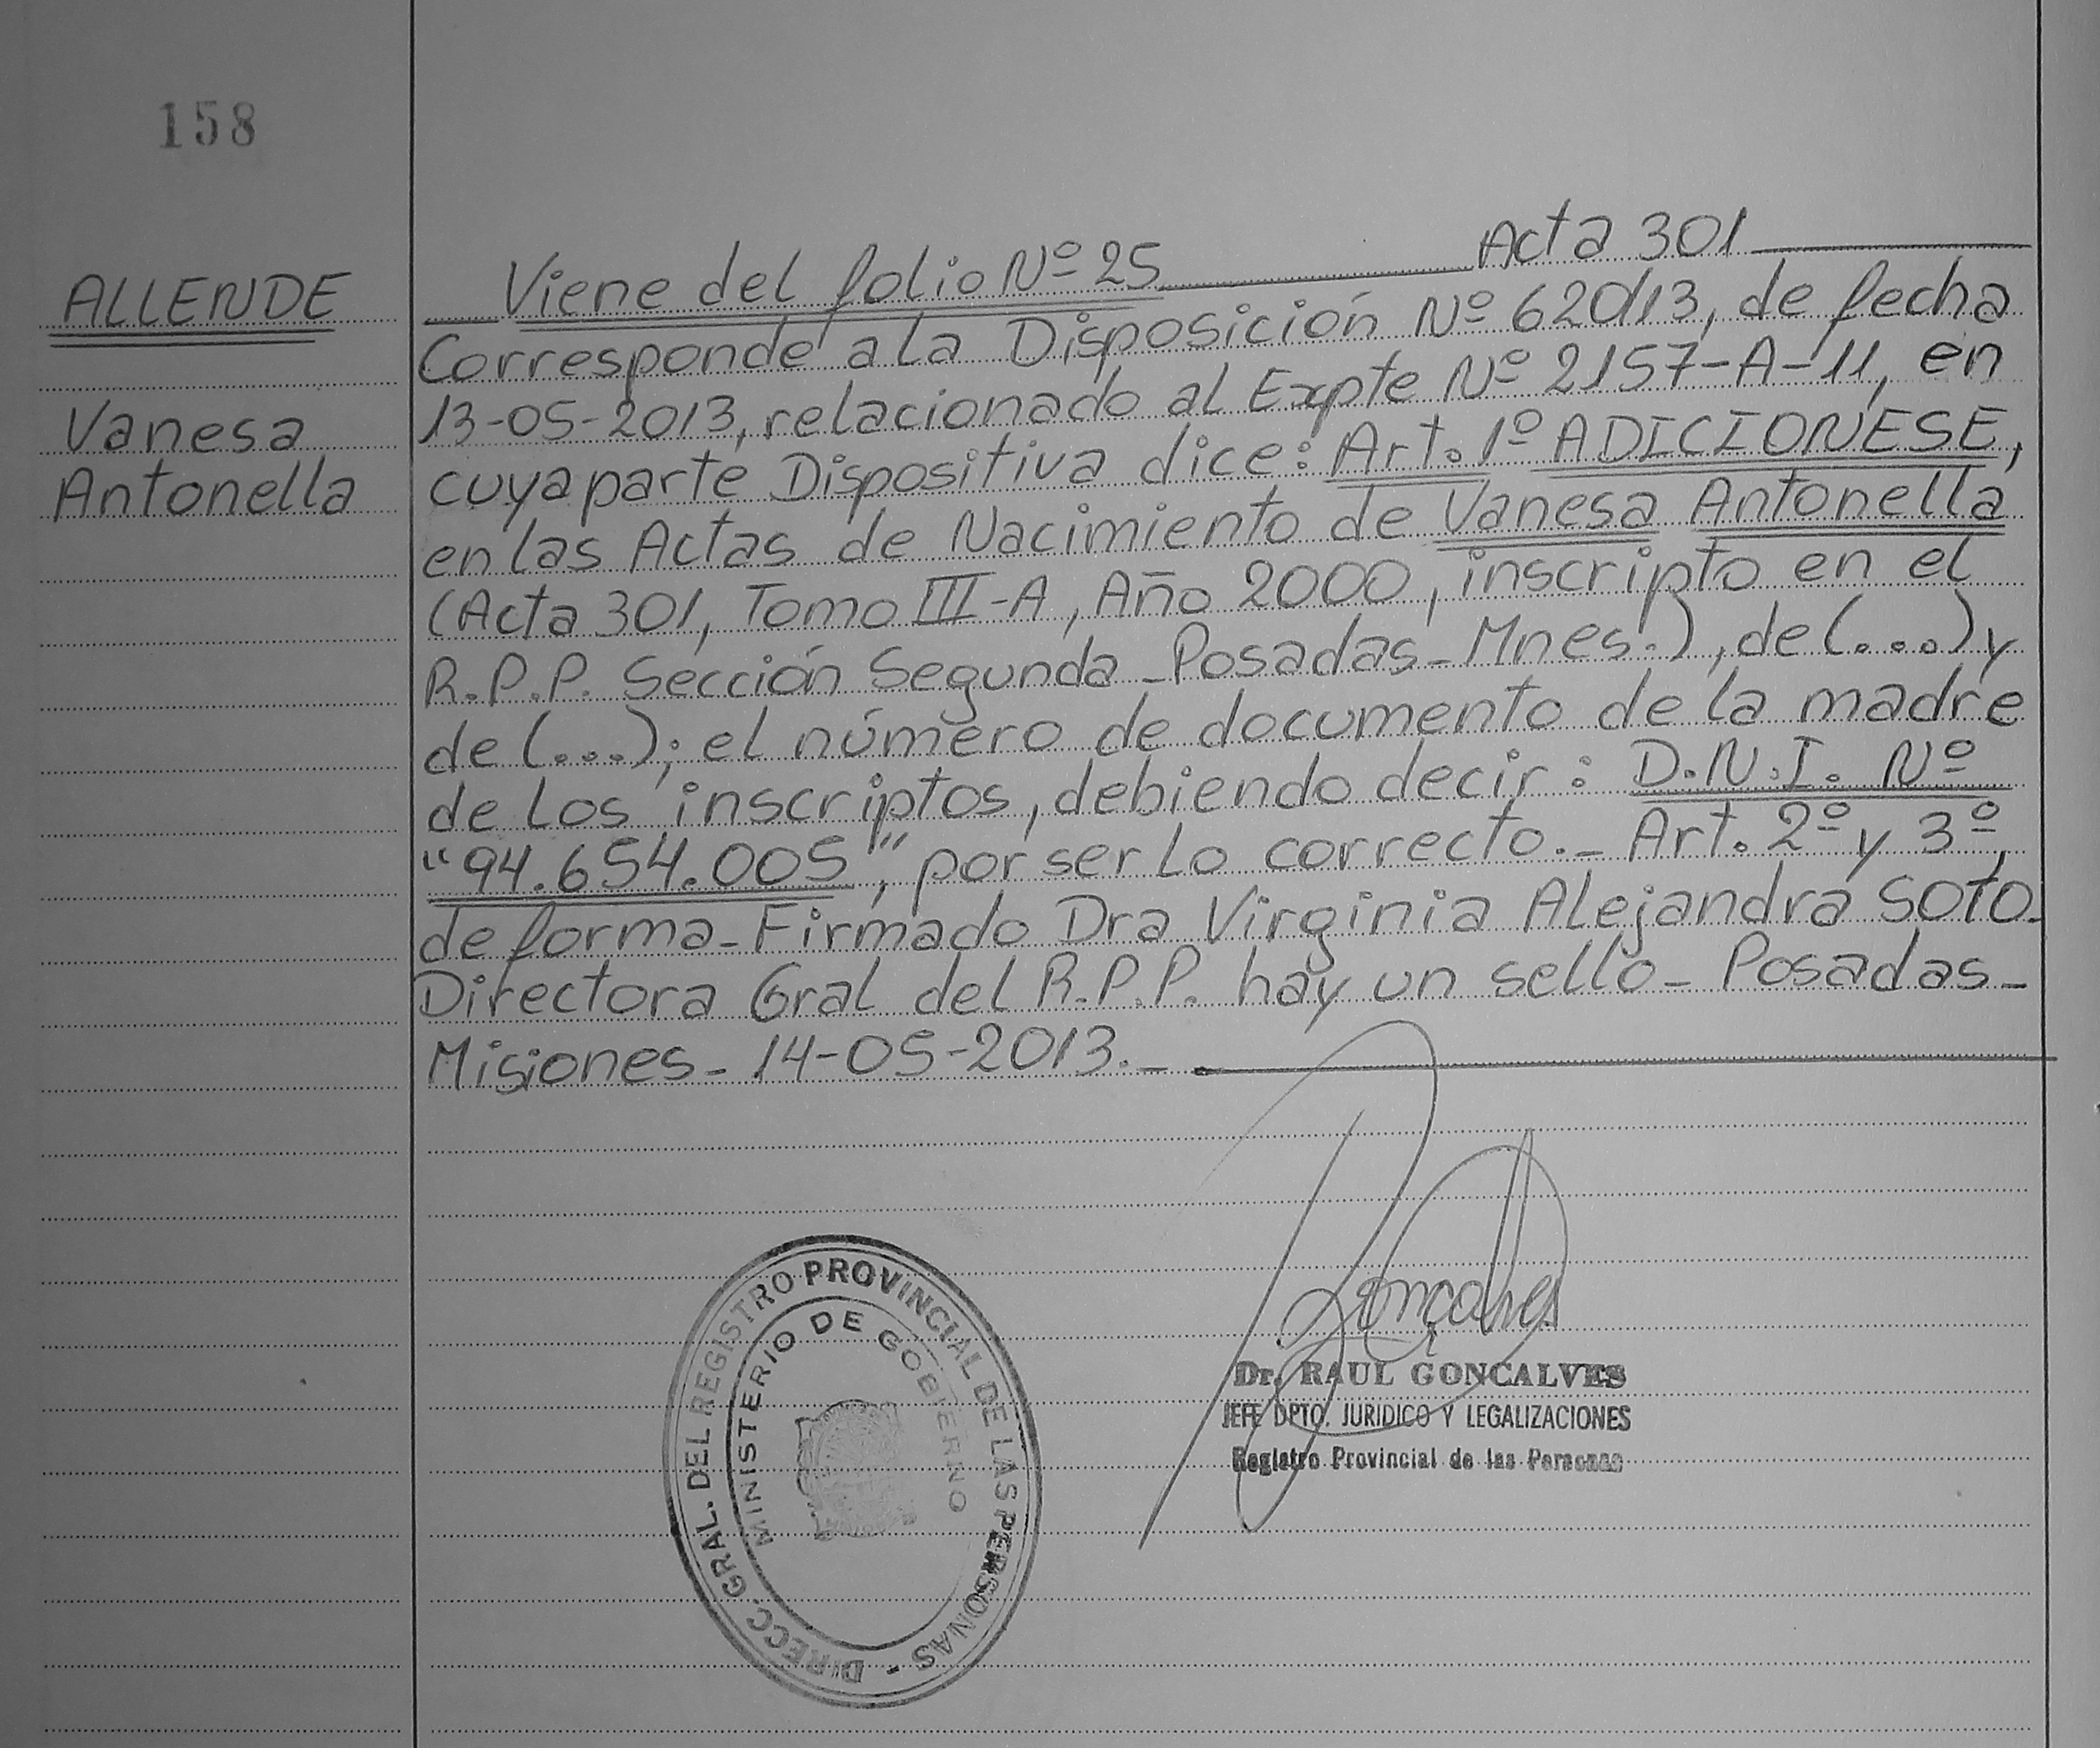 158
ALLENDE
Vanesa
Antonella
Viene del folio Nº 25 Acta 301
Corresponde a la Disposición Nº 620/13, de fecha
13-05-2013, relacionado al Expte Nº 2157-A-11, en
cuya parte Dispositiva dice: Art. 1º ADICIONESE,
en las Actas de Nacimiento de Vanesa Antonella
(Acta 301, Tomo III-A, Año 2000, inscripto en el
R.P.P. Sección Segunda - Posadas - Mnes.), de (...) y
de (...); el número de documento de la madre
de los inscriptos, debiendo decir: D.N.I. Nº
"94.654.005", por ser lo correcto.- Art. 2º y 3º,
de forma - Firmado Dra Virginia Alejandra SOTO-
Directora Gral del R.P.P. hay un sello - Posadas -
Misiones - 14-05-2013.-
DIRECC. GRAL. DEL REGISTRO PROVINCIAL DE LAS PERSONAS -
MINISTERIO DE GOBIERNO
Goncalves
Dr. RAUL GONCALVES
JEFE DPTO. JURIDICO Y LEGALIZACIONES
Registro Provincial de las Personas